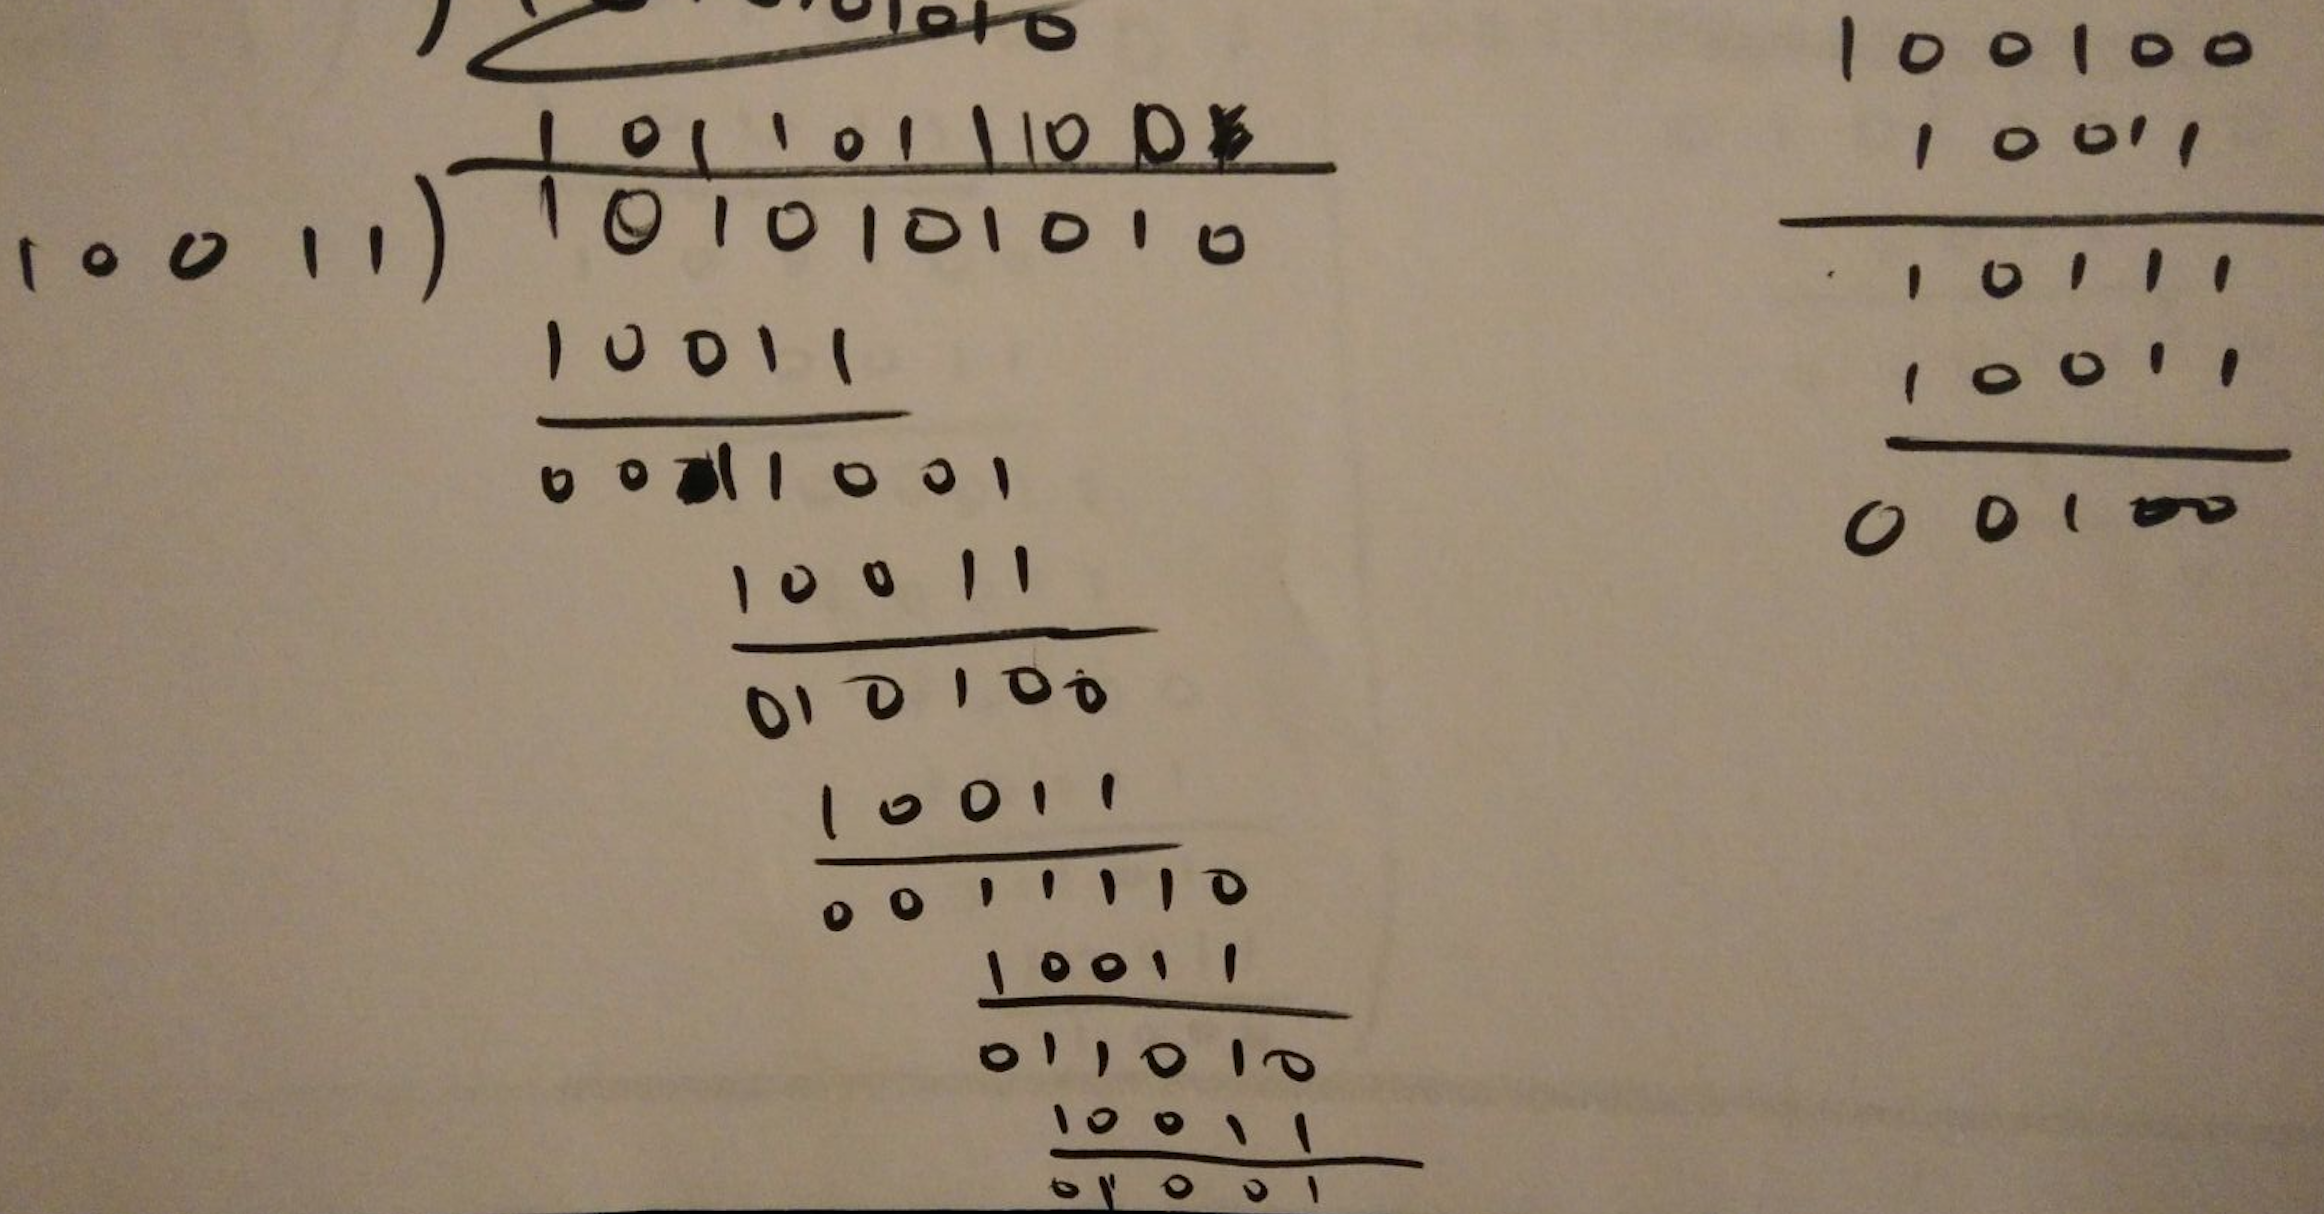 01010
1011011100
10011) 1010101010
10011
0011001
10011
010100
10011
0011110
10011
011010
10011
01001
100100
10011
10111
10011
00100